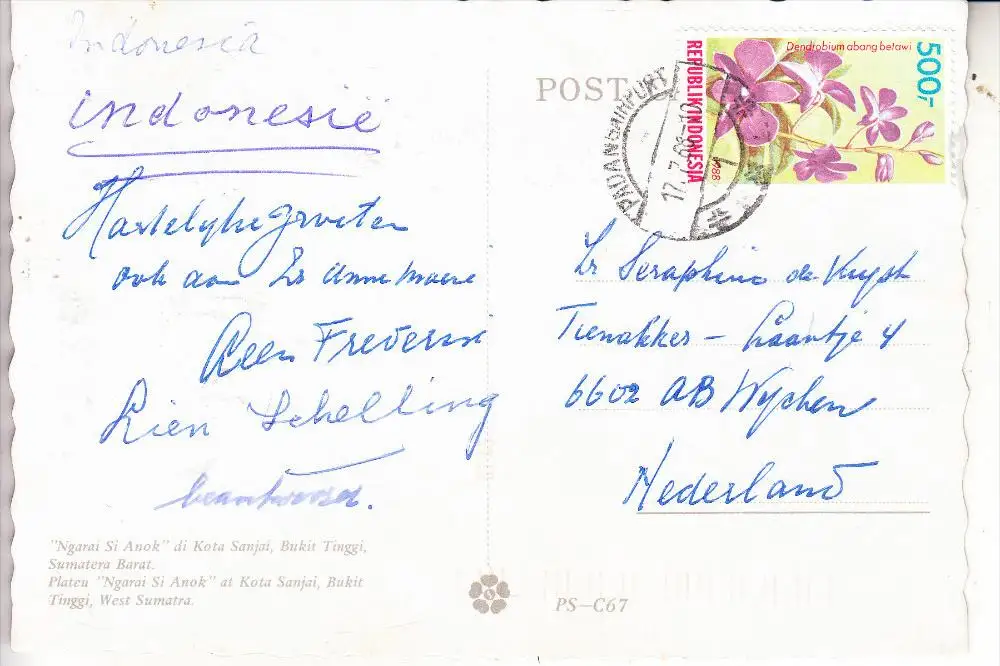 Indonesia
indonesië
POST
Dendrobium abang betawi
500,-
REPUBLIK INDONESIA
1988
17.7.89-10
Hartelijke groeten
ook aan Zr Anne Marie
Leen Frederix
Lien Schelling
beantwoord.
Zr Seraphine de Kuyst
Tienakker - Laantje 4
6602 AB Wijchen
Nederland
"Ngarai Si Anok" di Kota Sanjai, Bukit Tinggi,
Sumatera Barat.
Plateu "Ngarai Si Anok" at Kota Sanjai, Bukit
Tinggi, West Sumatra.
PS-C67